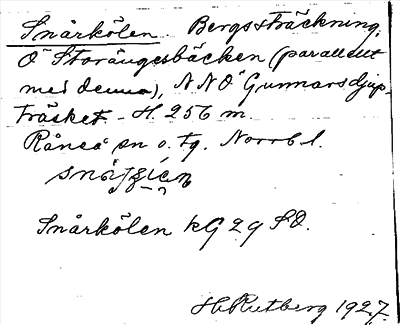 Snårkölen. Bergssträckning,
Ö Storängesbäcken (parallellt
med denna), NNÖ Gunnarsdjup-
träsket. H. 256 m.
Råneå sn o. tg. Norrb l.
Snårkölen kG 29 SO.
H. Rutberg 1927.